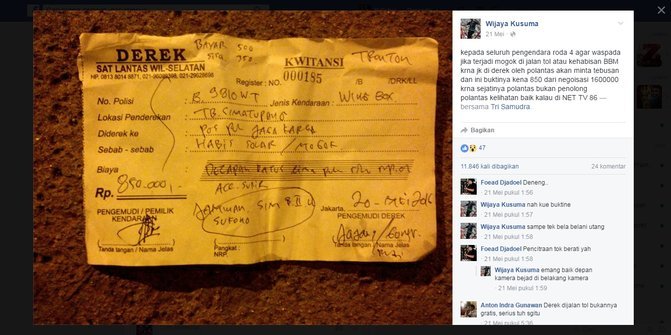 DEREK
SAT LANTAS WIL-SELATAN
BAYAR 500
sisa 350
KWITANSI
TRONTON
Register : NO. 000195 /B /DRK/EL
No. Polisi : B. 9810 WT Jenis Kendaraan : WING BOX
Lokasi Penderekan : TB. SIMATUPANG
Diderek ke : POS PJR JAGA KARSA
Sebab - sebab : HABIS SOLAR / MOGOK
Biaya
Rp. 850.000,-
PENGEMUDI / PEMILIK
KENDARAAN
JAMINAN SIM B II U
Jakarta, 20-
PENGEMUDI DEREK
Tanda tangan / Nama Jelas
Pangkat :
NRP.
Tanda tangan / Nama Jelas
Wijaya Kusuma
21 Mei
kepada seluruh pengendara roda 4 agar waspada
jika terjadi mogok di jalan tol atau kehabisan BBM
krna jk di derek oleh polantas akan minta tebusan
dan ini buktinya kena 850 dari negoisasi 1600000
krna sejatinya polantas bukan penolong
polantas kelihatan baik kalau di NET TV 86 —
bersama Tri Samudra
Bagikan
47
11.846 kali dibagikan
24 komentar
Foead Djadoel Deneng..
21 Mei pukul 1:56
Wijaya Kusuma nah kue buktine
21 Mei pukul 1:57
Wijaya Kusuma sampe tek bela belani utang
21 Mei pukul 1:58
Foead Djadoel Pencitraan tok berati yah
21 Mei pukul 1:58
Wijaya Kusuma emang baik depan
kamera bejad di belakang kamera
21 Mei pukul 1:59
Anton Indra Gunawan Derek dijalan tol bukannya
gratis, serius tuh sgitu
21 Mei pukul 5:36